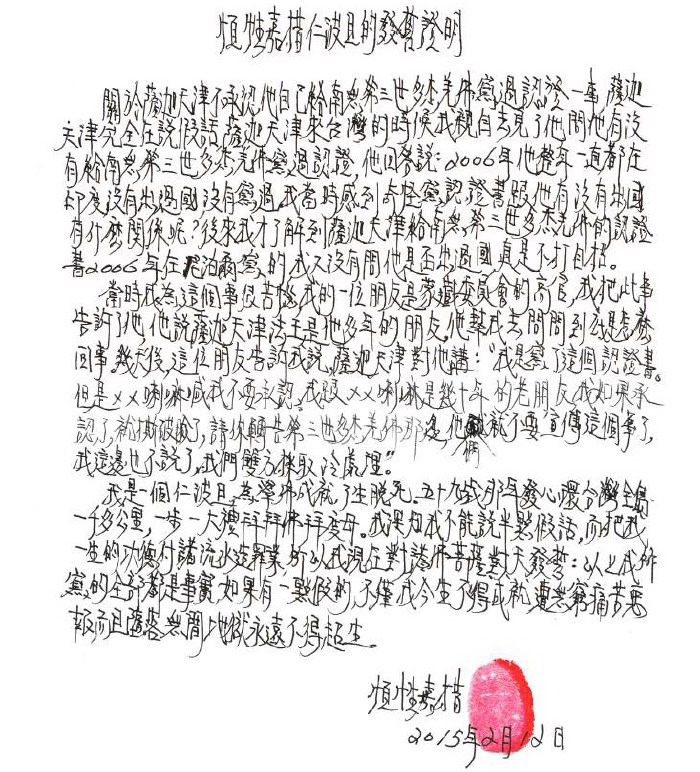 恒性嘉措仁波且的發誓證明
關於薩迦天津不承認他自己給南無第三世多杰羌佛寫過認證一事,薩迦
天津完全在說假話,薩迦天津來台灣的時候我親自去見了他問他有沒
有給南無第三世多杰羌佛寫過認證,他回答說:2006年他整年一直都在
印度沒有出過國沒有寫過,我當時感到奇怪寫認證書跟他有沒有出國
有什麼關係呢?後來我才了解到薩迦天津給南無第三世多杰羌佛的認證
書2006年在尼泊爾寫的,我又沒有問他是否出過國真是不打自招。
當時我為這個事很苦惱,我的一位朋友是蒙藏委員會的高官,我把此事
告訴了他,他說薩迦天津法王是他多年的朋友,他幫我去問問到底是怎麼
回事。幾天後,這位朋友告訴我說,薩迦天津對他講:“我是寫了這個認證書。
但是××喇嘛喊我不要承認。我跟××喇嘛是幾十年的老朋友,我如果承
認了,就撕破臉了,請你轉告第三世多杰羌佛那邊他們就不要宣傳這個事了,
我這邊也不說了,我們雙方採取冷處理”
我是一個仁波且,為學佛成就了生脫死。五十九歲那年發心環台灣全島
一千多公里,一步一大禮拜拜佛拜度母。我深知我不能說半點假話,而把我
一生的功德付諸流水造罪業,所以我現在對諸佛菩薩對天發誓:以上我所
寫的全部都是事實,如果有一點假的,不僅我今生不得成就,遭無窮痛苦惡
報,而且墮落無間地獄永遠不得超生。
恒性嘉措
2015年2月12日